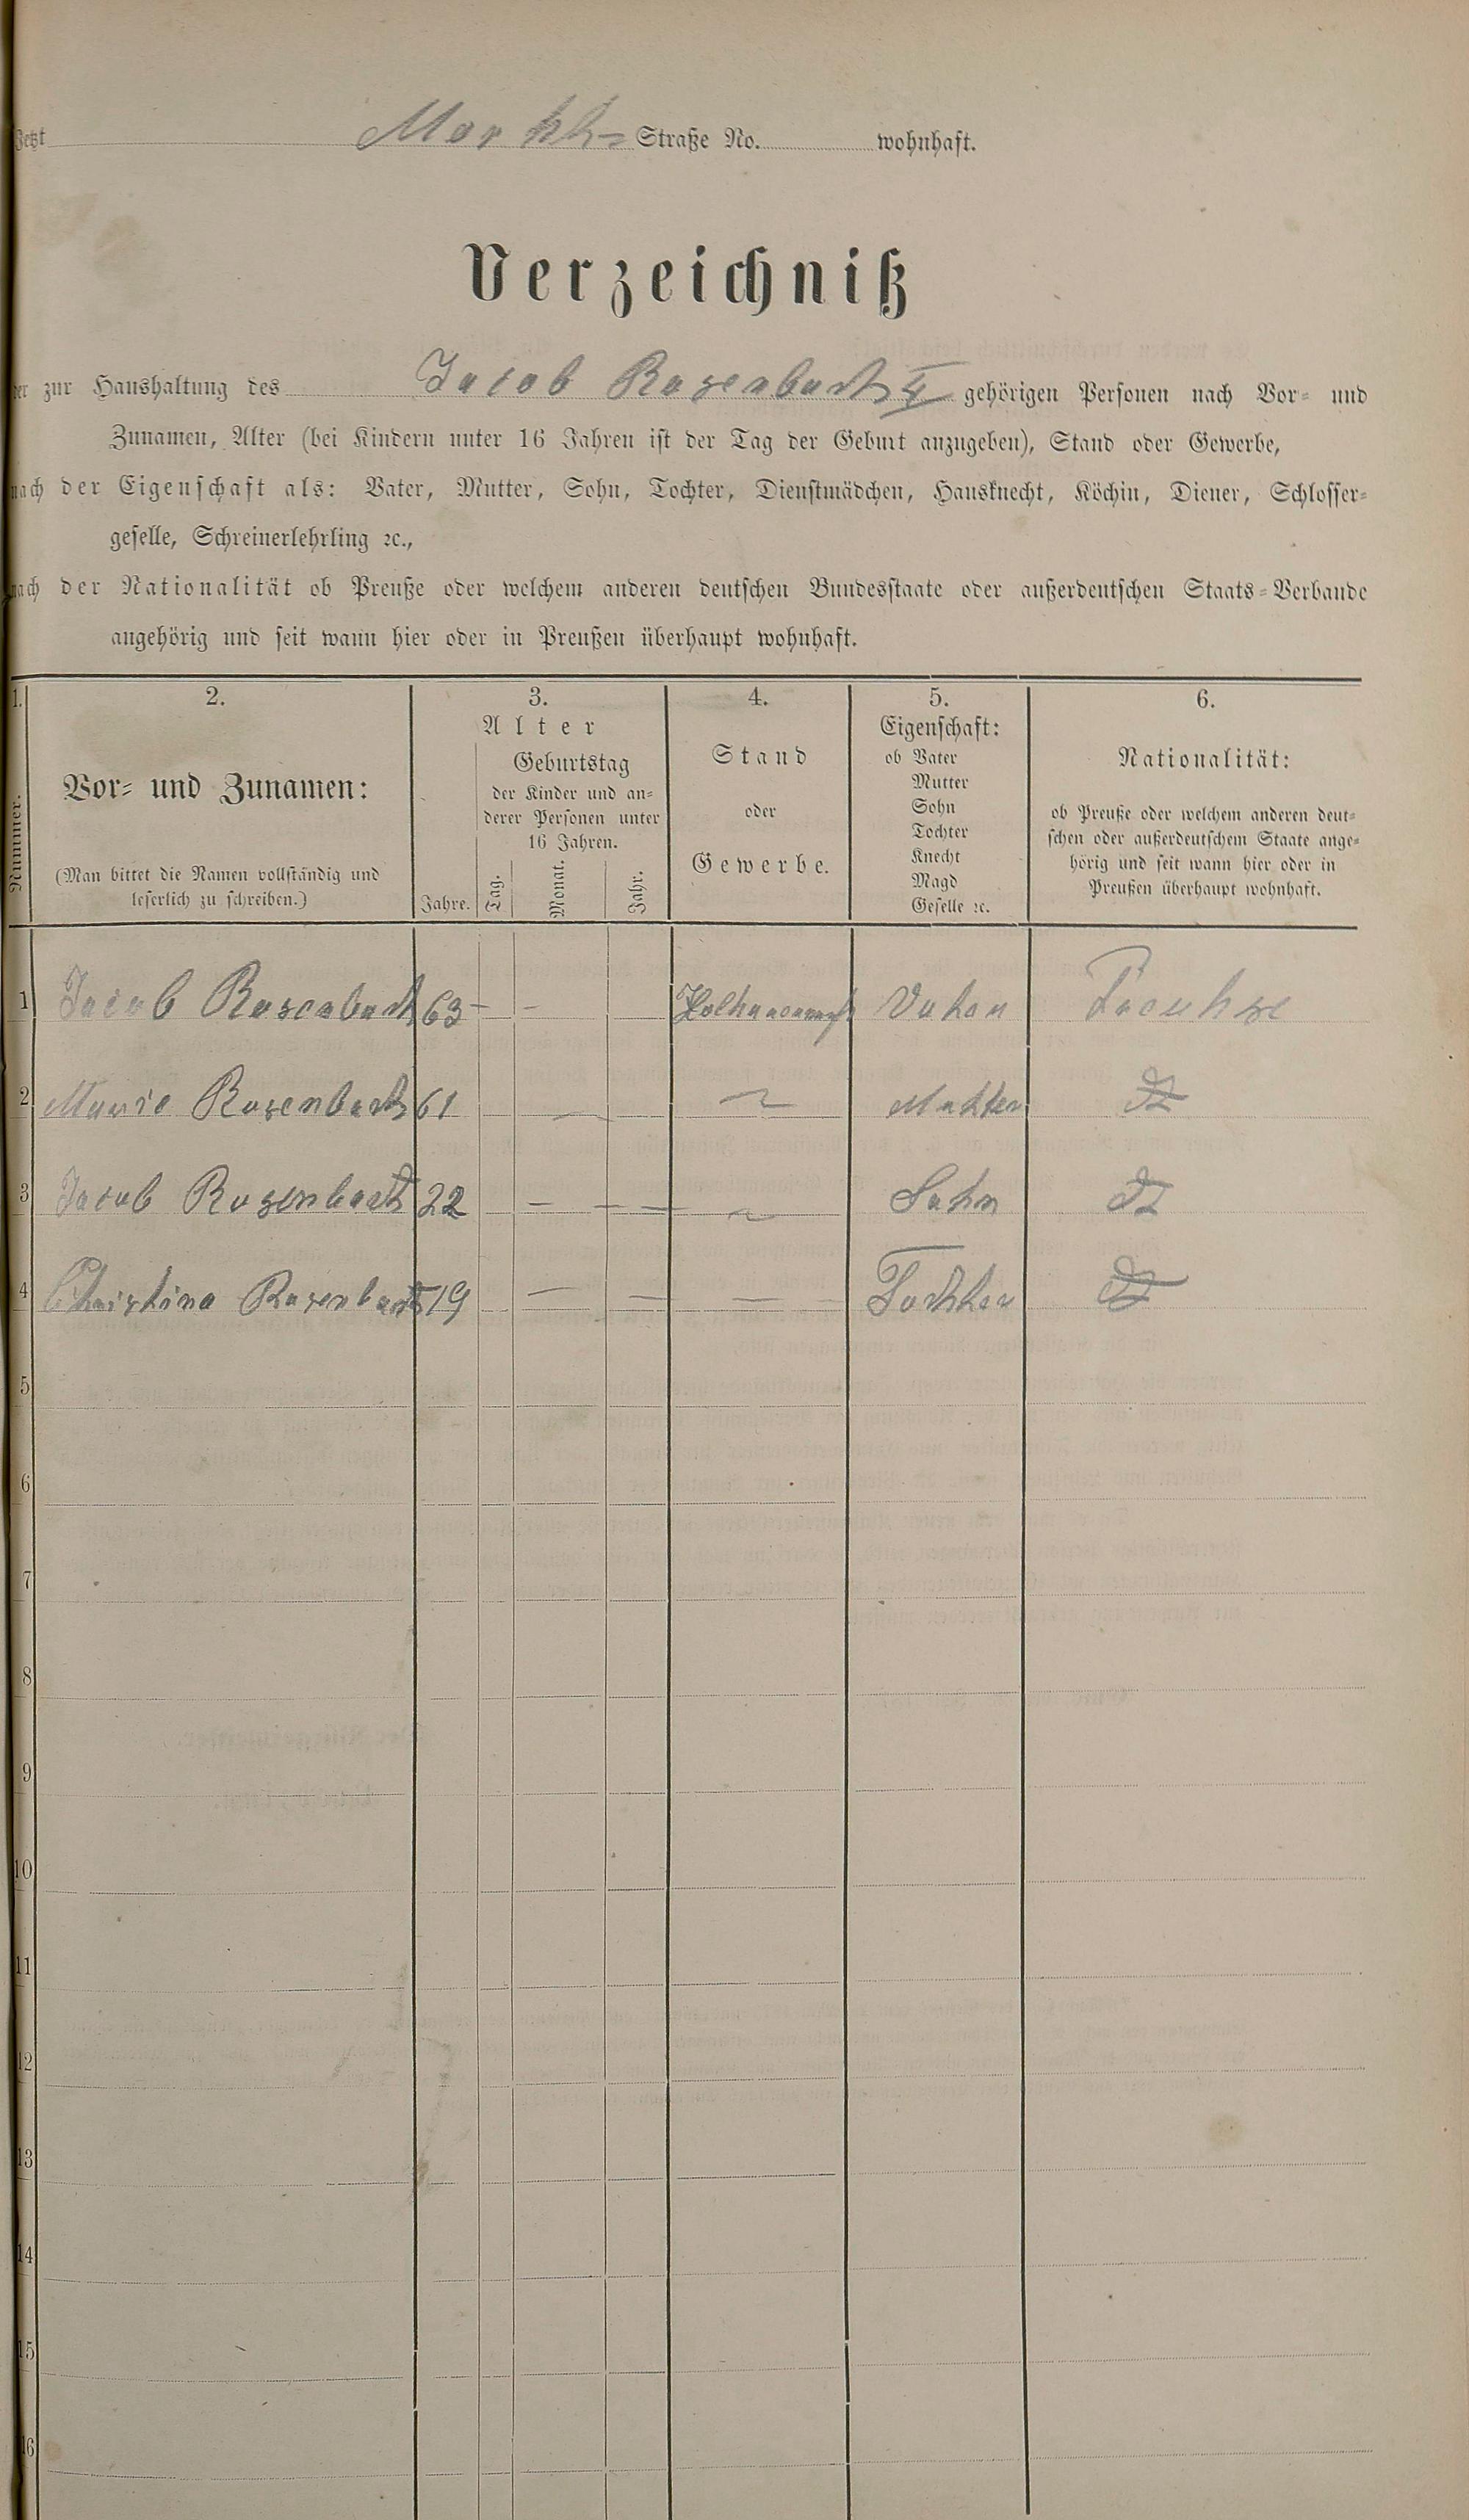 Jetzt Markt- Straße No. wohnhaft.
Verzeichniß
der zur Haushaltung des Jacob Rosenbach gehörigen Personen nach Vor- und
Zunamen, Alter (bei Kindern unter 16 Jahren ist der Tag der Geburt anzugeben), Stand oder Gewerbe,
nach der Eigenschaft als: Vater, Mutter, Sohn, Tochter, Dienstmädchen, Hausknecht, Köchin, Diener, Schlosser-
geselle, Schreinerlehrling ꝛc.,
nach der Nationalität ob Preuße oder welchem anderen deutschen Bundesstaate oder außerdeutschen Staats-Verbande
angehörig und seit wann hier oder in Preußen überhaupt wohnhaft.
1. 2. 3. 4. 5. 6.
Nummer.
Vor- und Zunamen:
(Man bittet die Namen vollständig und
leserlich zu schreiben.)
Alter
Jahre.
Geburtstag
der Kinder und an-
derer Personen unter
16 Jahren.
Tag. Monat. Jahr.
Stand
oder
Gewerbe.
Eigenschaft:
ob Vater
Mutter
Sohn
Tochter
Knecht
Magd
Geselle ꝛc.
Nationalität:
ob Preuße oder welchem anderen deut-
schen oder außerdeutschem Staate ange-
hörig und seit wann hier oder in
Preußen überhaupt wohnhaft.
1 Jacob Rosenbach 63 - - Vater Preuhse
2 Marie Rosenbach 61 — Mutter
3 Jacob Rosenbach 22 - - - Sohn
4 Christina Rosenbach 19 — — — Tochter
5
6
7
8
9
10
11
12
13
14
15
16